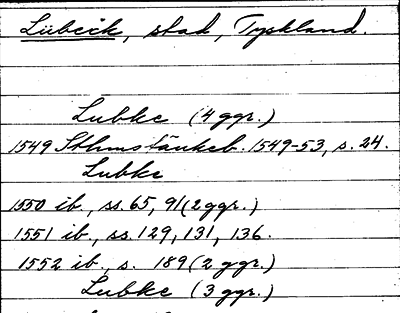 Lübeck, stad, Tyskland.
Lubke (4 ggr.)
1549 Sthmstänkeb. 1549-53, s. 24.
Lubke
1550 ib., ss. 65, 91 (2 ggr.)
1551 ib., ss. 129, 131, 136.
1552 ib., s. 189 (2 ggr.)
Lubke (3 ggr.)